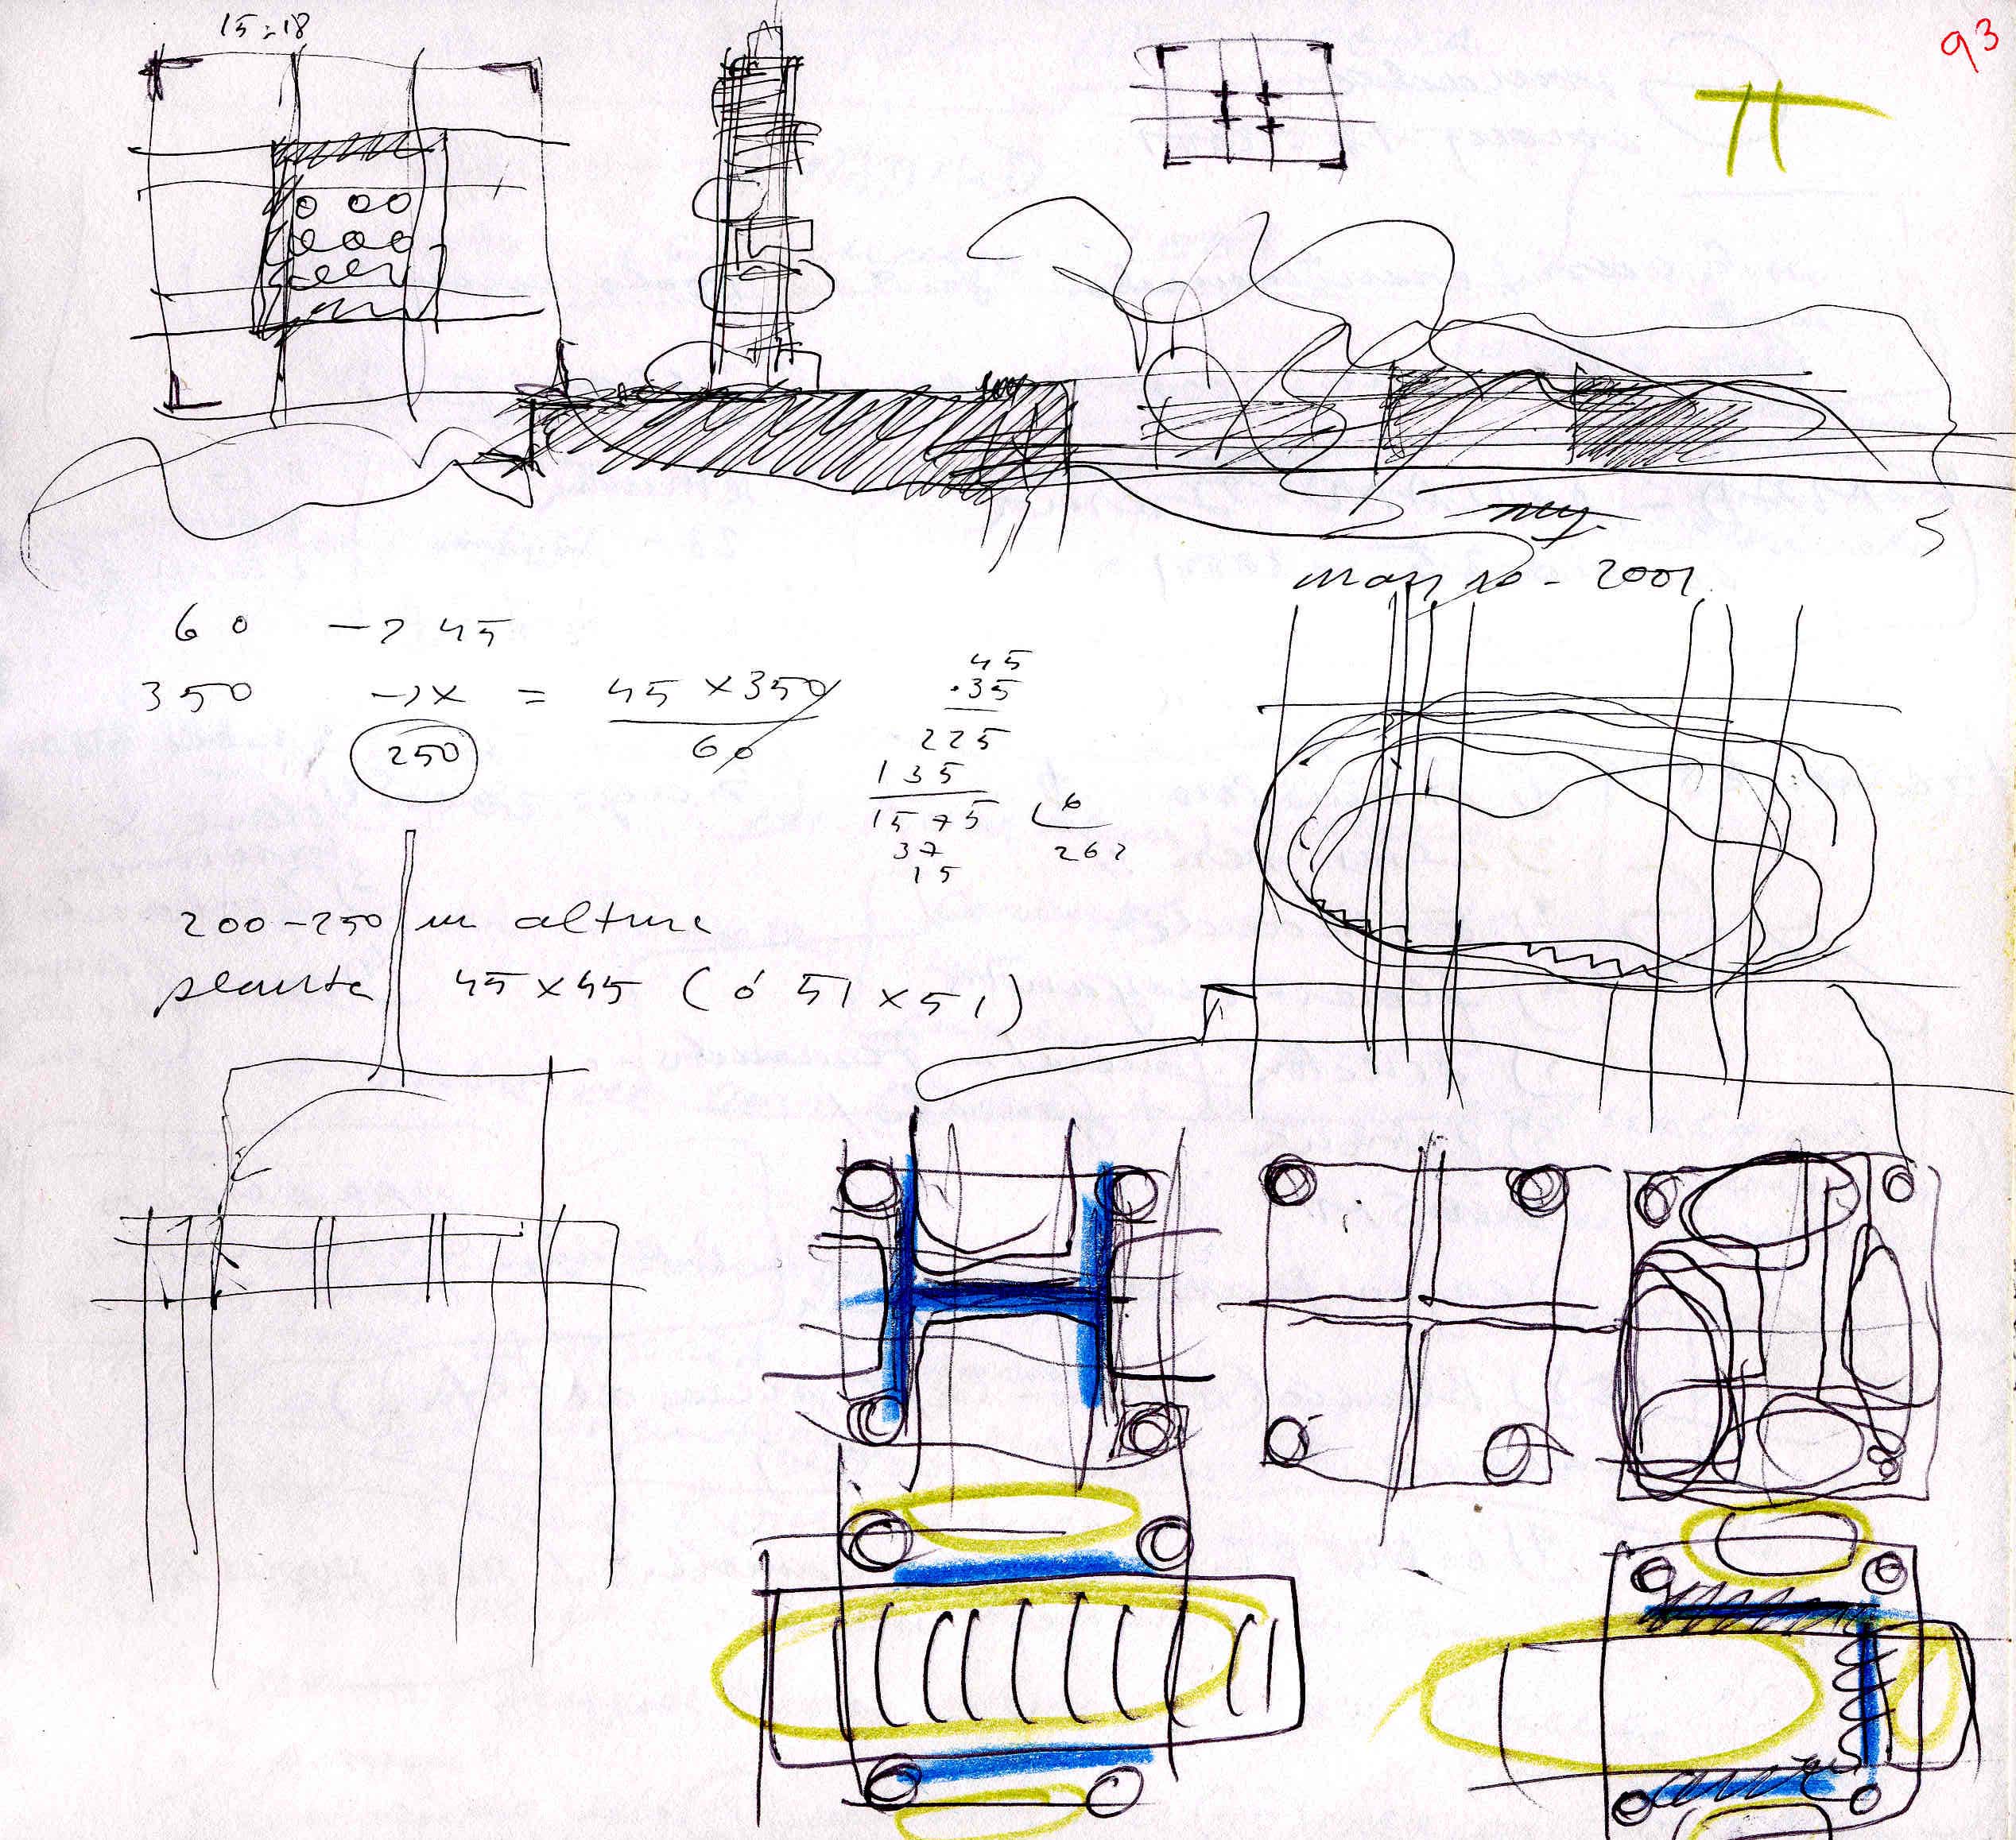 15-18
93
mayo - 2001
60 -> 45
350 -> x = 45 x 350
60
250
45
.35
225
135
1575 6
37 262
15
200-250 m altura
planta 45 x 45 (ó 51 x 51)